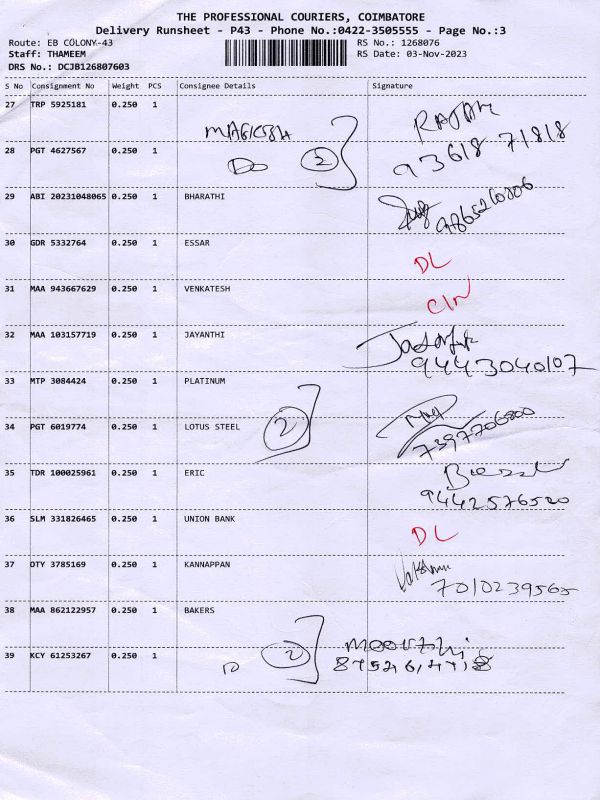 THE PROFESSIONAL COURIERS, COIMBATORE
Delivery Runsheet - P43 - Phone No.:0422-3505555 - Page No.:3
Route: EB COLONY-43 RS No.: 1268076
Staff: THAMEEM RS Date: 03-Nov-2023
DRS No.: DCJB126807603
S No Consignment No Weight PCS Consignee Details Signature
27 TRP 5925181 0.250 1
28 PGT 4627567 0.250 1 2 93618 71818
29 ABI 20231048065 0.250 1 BHARATHI
30 GDR 5332764 0.250 1 ESSAR DL
31 MAA 943667629 0.250 1 VENKATESH
32 MAA 103157719 0.250 1 JAYANTHI 9443040107
33 MTP 3084424 0.250 1 PLATINUM
34 PGT 6019774 0.250 1 LOTUS STEEL 2 7397706800
35 TDR 100025961 0.250 1 ERIC 9442576520
36 SLM 331826465 0.250 1 UNION BANK DL
37 OTY 3785169 0.250 1 KANNAPPAN 7010239565
38 MAA 862122957 0.250 1 BAKERS moorthi
39 KCY 61253267 0.250 1 2